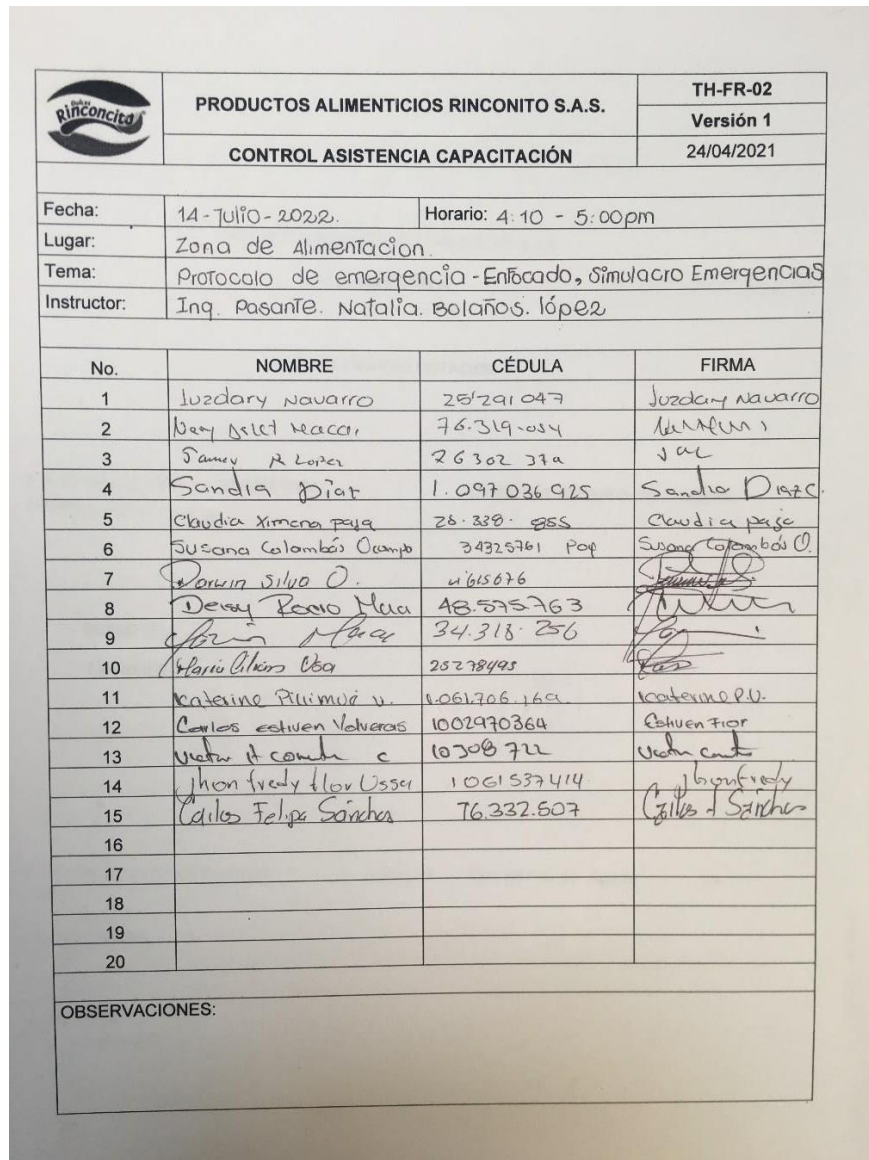 Dulces
Rinconcito
PRODUCTOS ALIMENTICIOS RINCONITO S.A.S.
TH-FR-02
Versión 1
CONTROL ASISTENCIA CAPACITACIÓN
24/04/2021
Fecha: 14-Julio-2022. Horario: 4:10 - 5:00pm
Lugar: Zona de Alimentacion.
Tema: Protocolo de emergencia - Enfocado, Simulacro Emergencias
Instructor: Ing. Pasante. Natalia. Bolaños. lópez
No. NOMBRE CÉDULA FIRMA
1 Luzdary Navarro 25'291047 Luzdary Navarro
2 76.319.054
3 R Lopez
4 Sandra Díaz 1.097036925 Sandra Diaz C.
5 Claudia Ximena paja Claudia paja
6 Susana Colambás Ocampo 34325761 Pop Susana Colambás O.
7 Darwin Silva O.
8 Deisy Rocio 48.575.763
9 34.318.256
10 25278495
11 Katerine Pillimué v. 1.061.706.169 Katerine P.V.
12 Carlos estiven Volveras 1002970364 Estiven Flor
13 10308722
14 Jhon fredy flor Ussa 1061537414 Jhon fredy
15 Carlos Felipe Sánchez 76.332.507 Carlos F Sánchez
16
17
18
19
20
OBSERVACIONES: